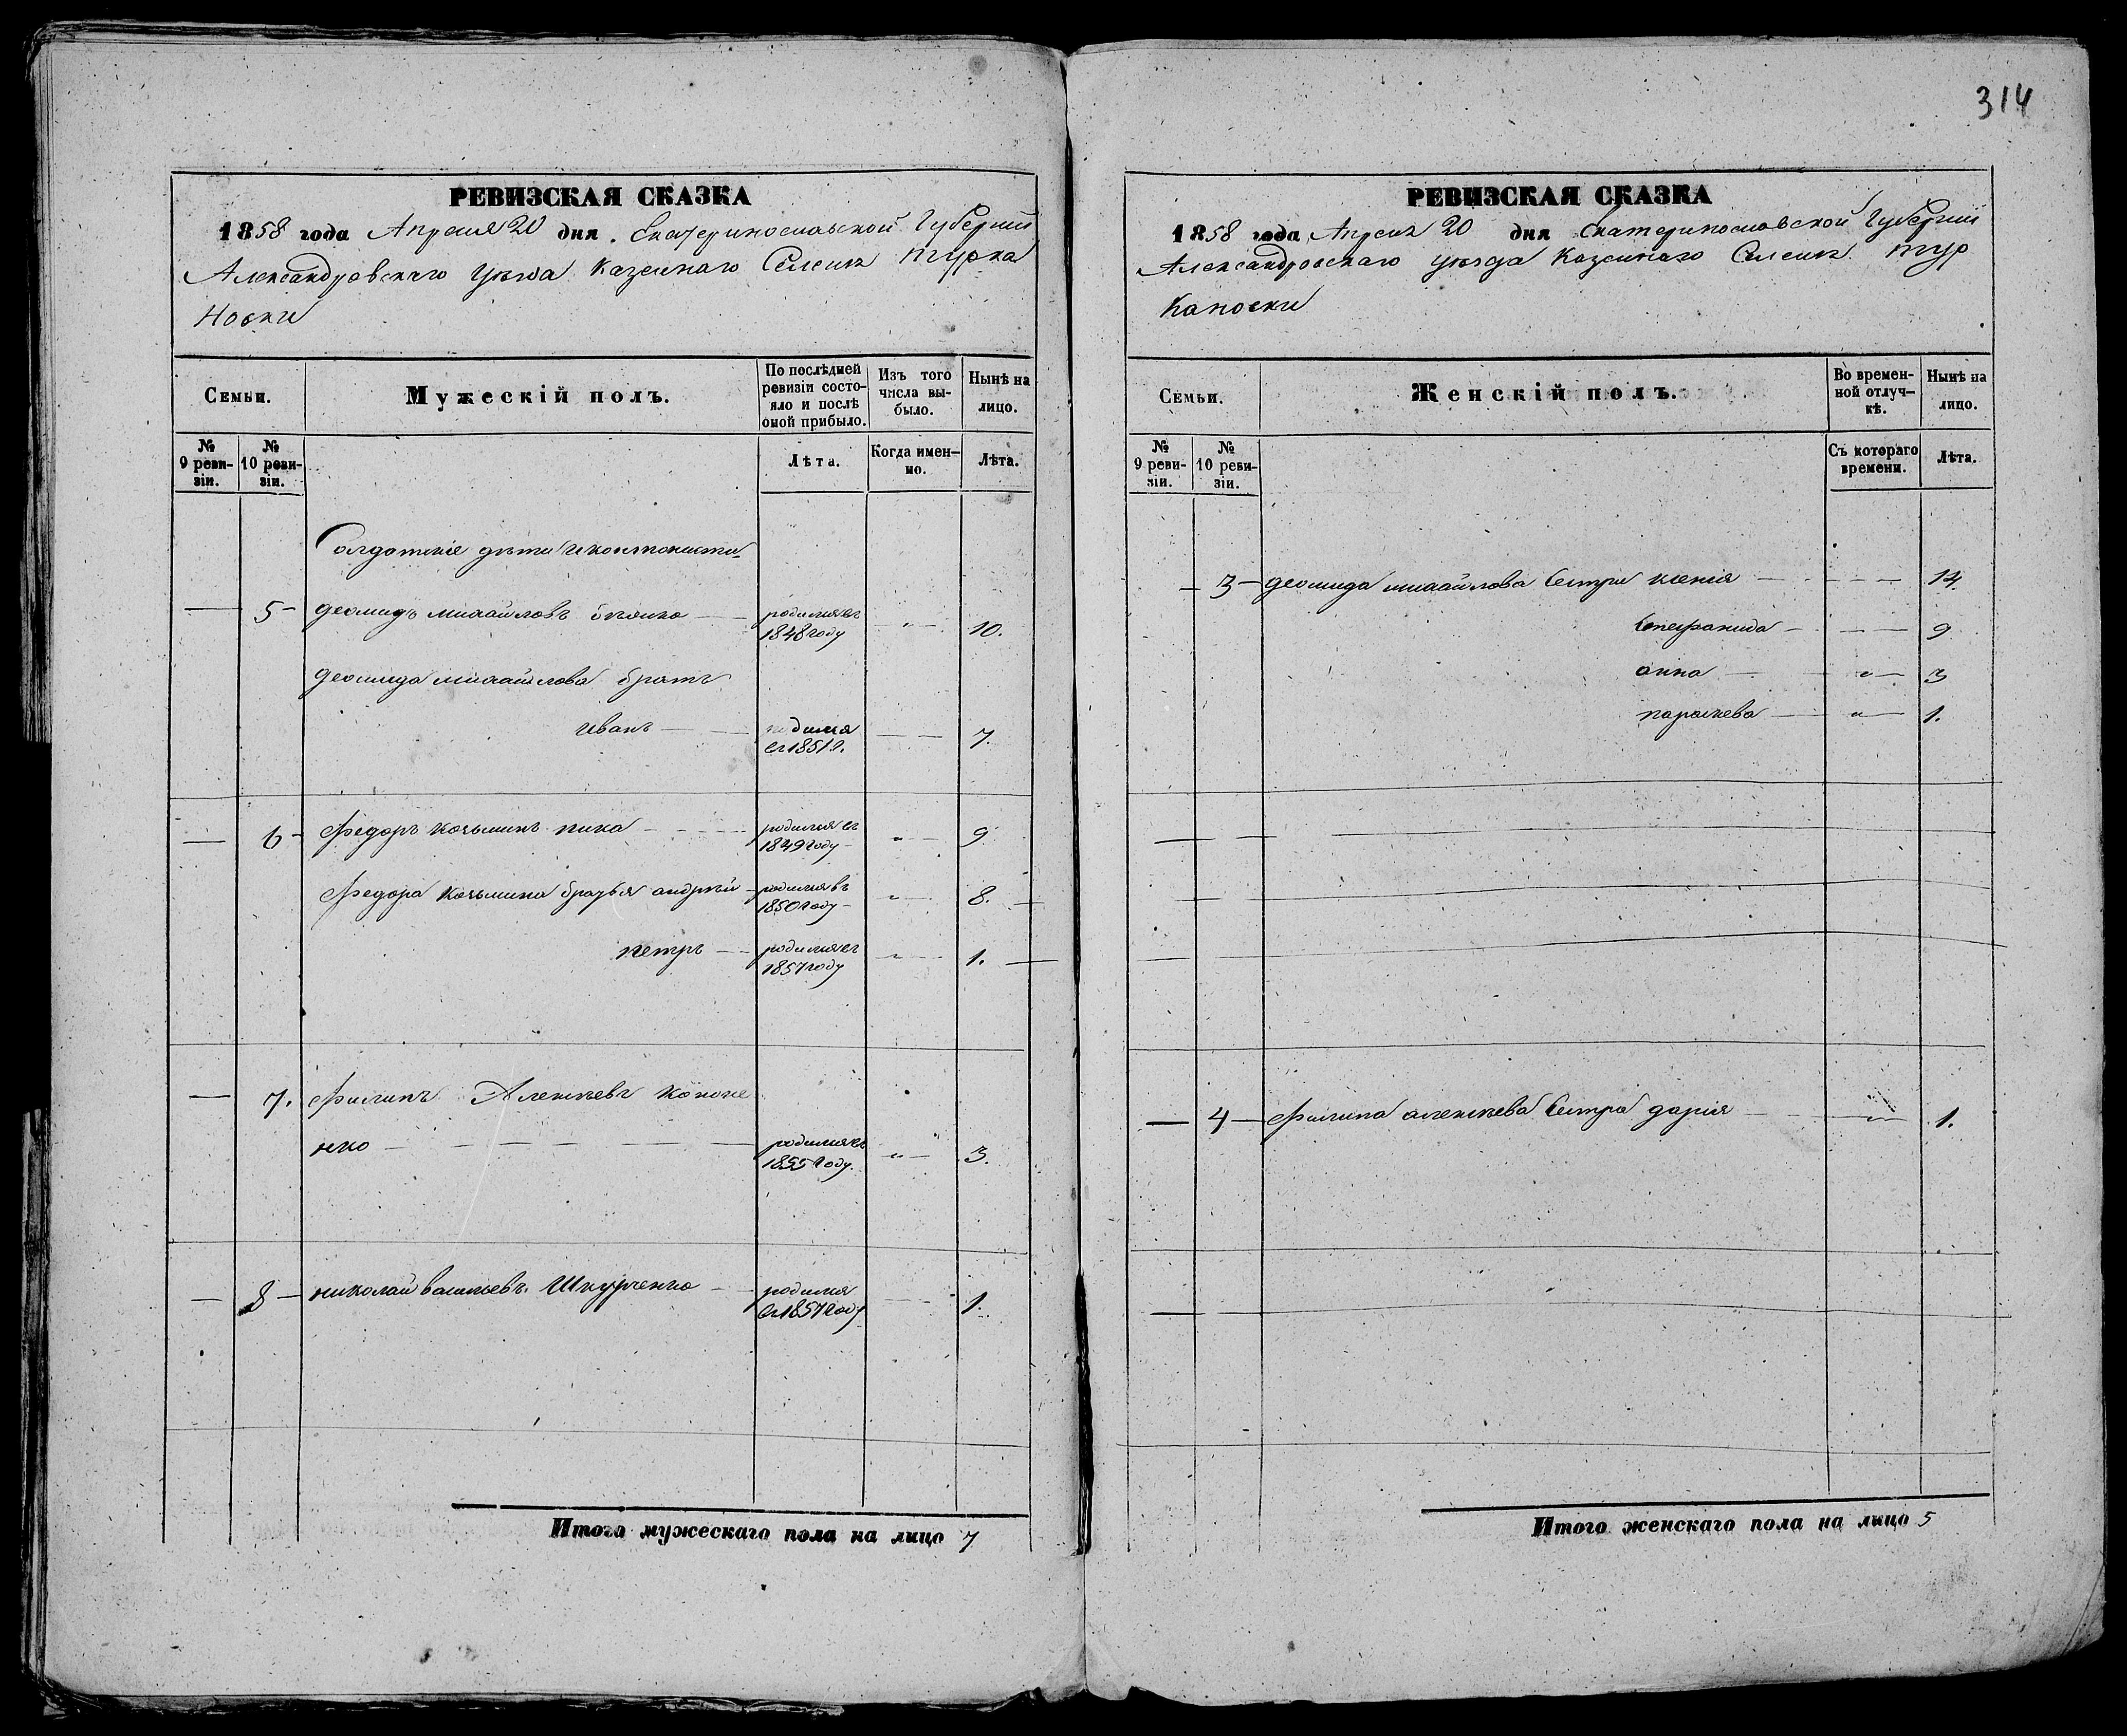 314
РЕВИЗСКАЯ СКАЗКА
1858 года Апреля 20 дня. Екатеринославской Губернии
Александровскаго уѣзда Казеннаго Селенія Турка
новки
Семьи.
Мужескій полъ.
По послѣдней ревизіи состояло и послѣ оной прибыло.
Изъ того числа выбыло.
Нынѣ на лицо.
№ 9 ревизіи.
№ 10 ревизіи.
Лѣта.
Когда именно.
Лѣта.
Солдатскіе дѣти и кантонисты
— 5 — Деомидъ Михайловъ — родился въ 1848 году — " — 10.
Деомида Михайлова братъ
Иванъ — родился въ 1851 г. — — 7.
— 6 — Федоръ Козьминъ пика — родился въ 1849 году — " — 9
Федора Козьмина братья Андрѣй — родился въ 1850 году — " — 8. —
Петръ — родился въ 1857 году — " — 1. —
— 7. Филипъ Алексѣевъ Кононе
нко — родился въ 1855 году. " — 3.
— 8 — Николай Васильевъ Шкурченко — родился въ 1857 году — — 1.
Итого мужескаго пола на лицо 7
РЕВИЗСКАЯ СКАЗКА
1858 года Апреля 20 дня Екатеринославской Губерніи
Александровскаго уѣзда Казеннаго Селенія Тур
кановки
Семьи.
Женскій полъ.
Во временной отлучкѣ.
Нынѣ на лицо.
№ 9 ревизіи.
№ 10 ревизіи.
Съ котораго времени.
Лѣта.
— 3 — Деомида Михайлова Сестры Ксенія — — 14.
Степанида — — 9
Анна — " — 3
Параскева — " — 1.
— 4 — Филипа Алексѣева Сестра Дарія — " — 1.
Итого женскаго пола на лицо 5